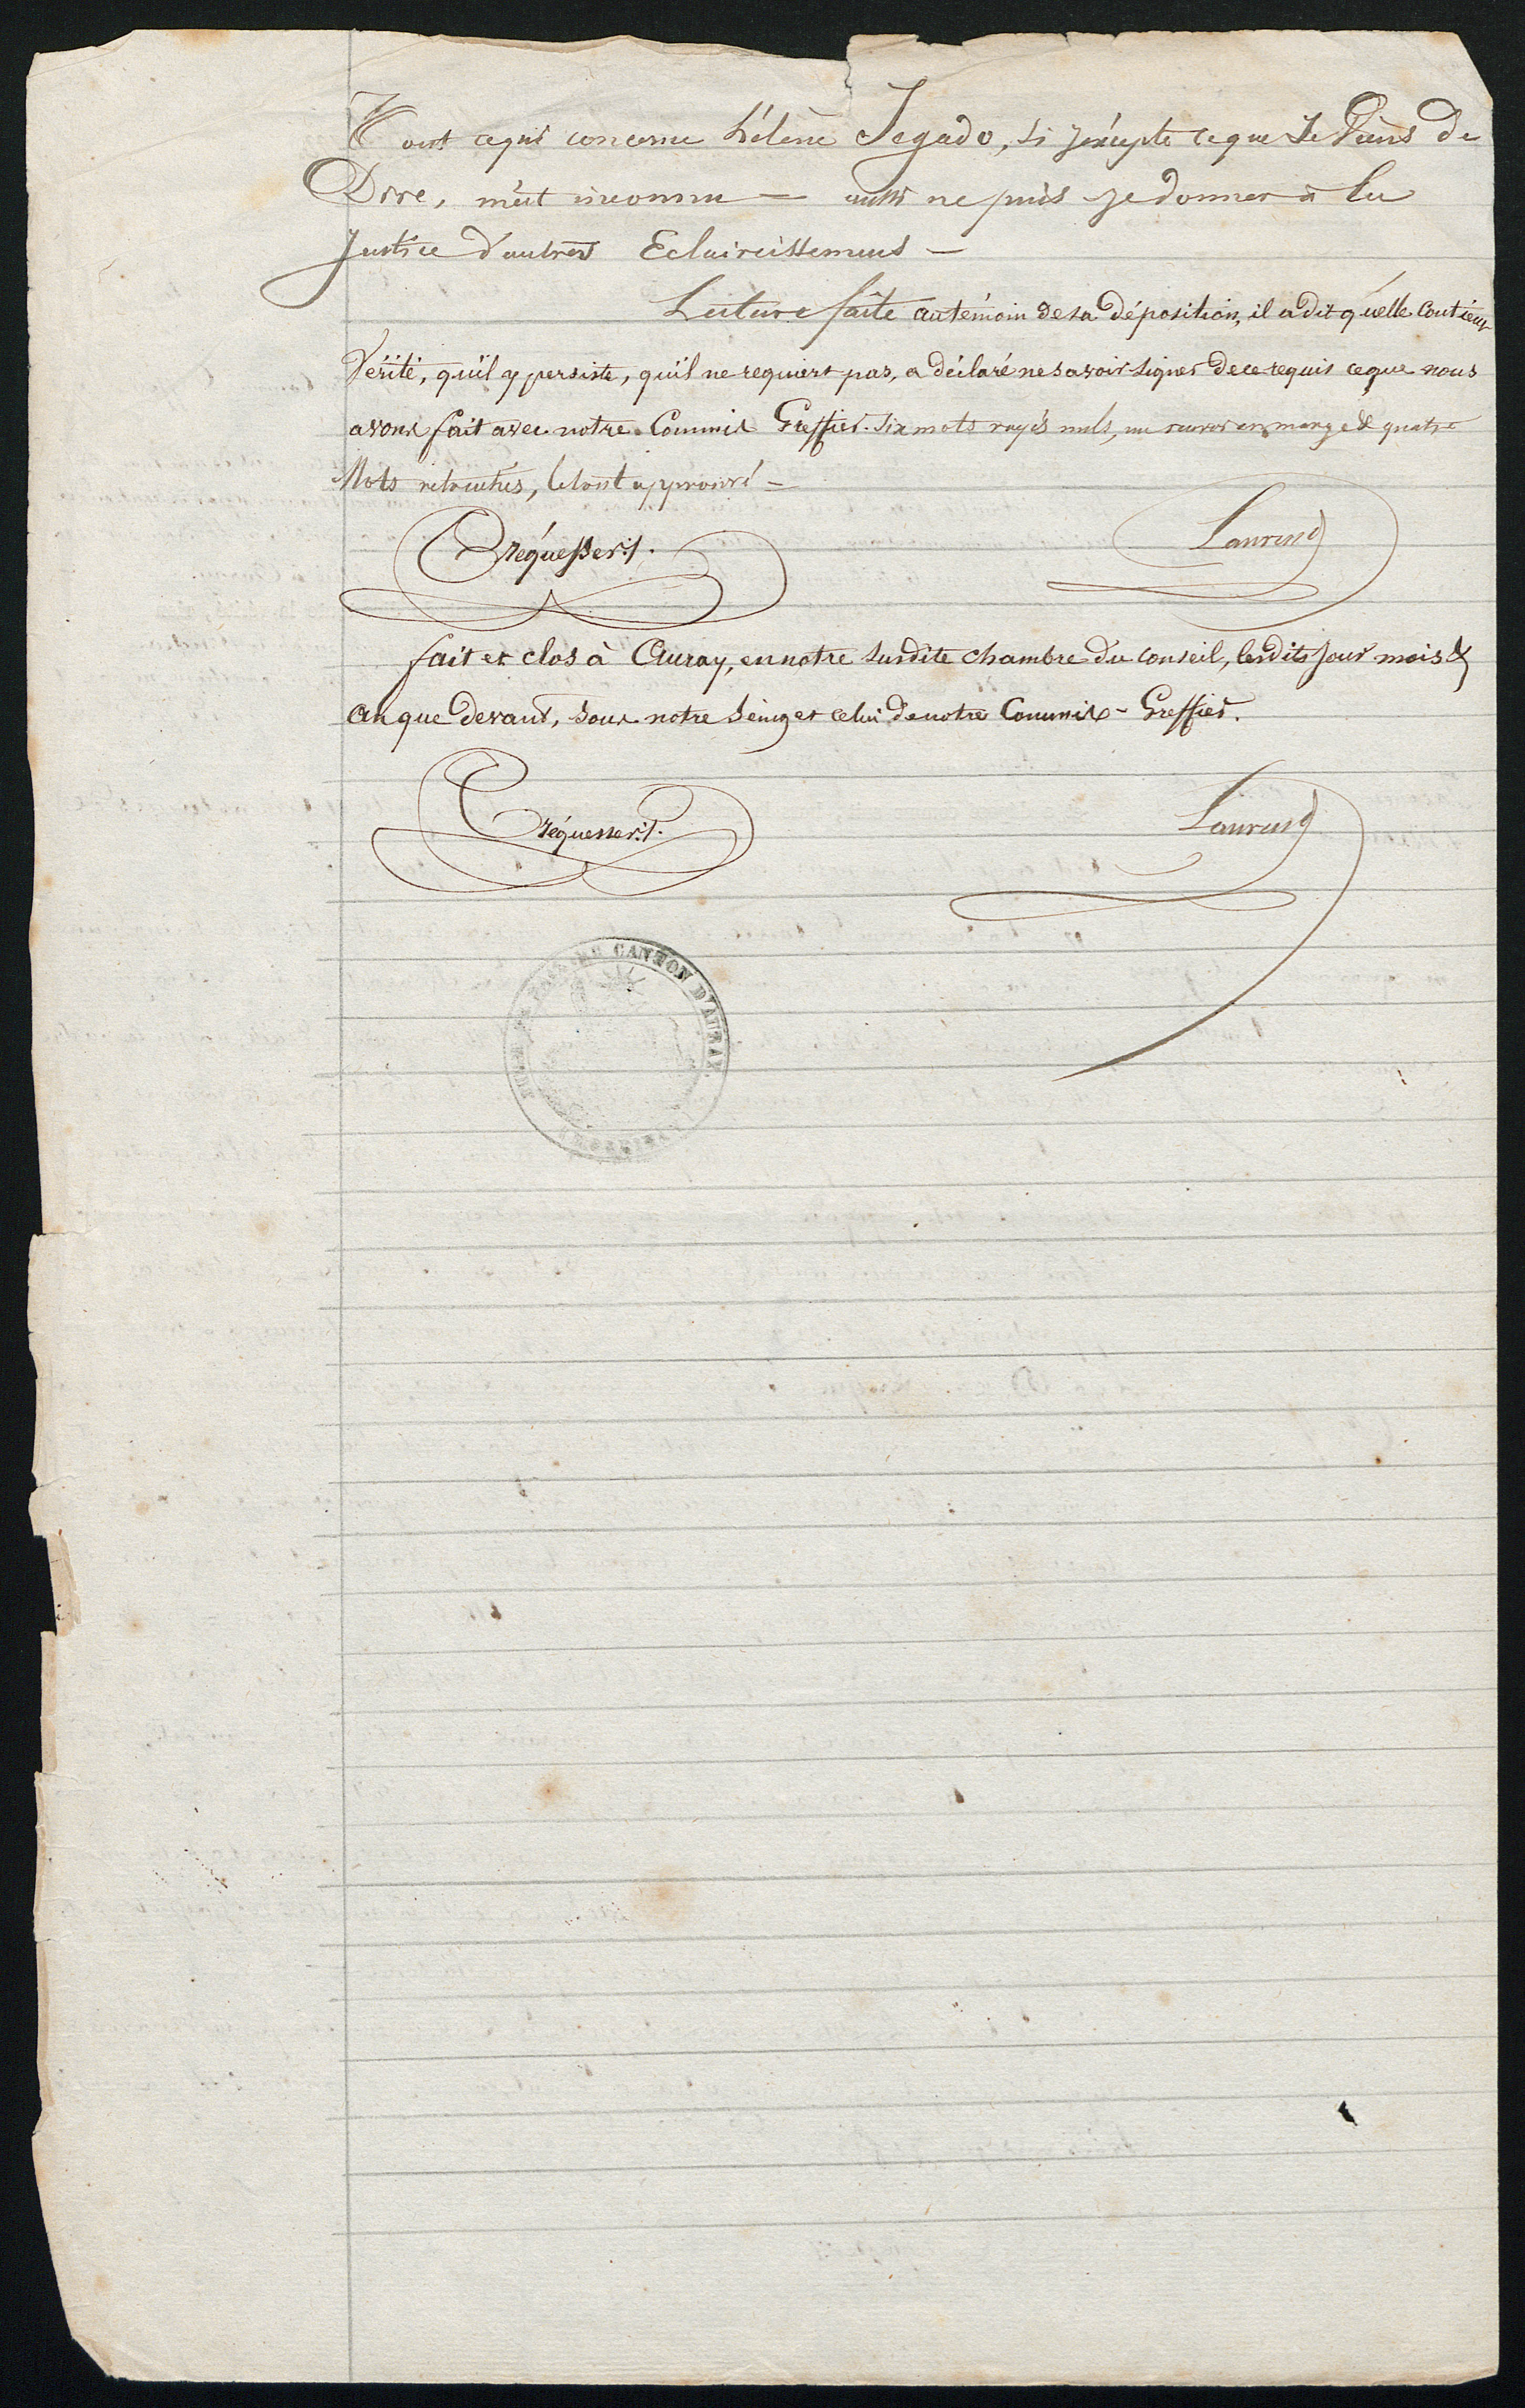 Tout ce qui concerne hélène Jegado, si j'excepte ce que Je Viens de
Dire, m'est inconnu — aussi ne puis je donner à la
Justice d'autres Eclaircissemens —
Lecture faite au témoin de sa déposition, il a dit qu'elle contient
Vérité, qu'il y persiste, qu'il ne requiert pas, a déclaré ne savoir signer de ce requis ce que nous
avons fait avec notre Commis Greffier. Six mots rayés nuls, un renvoi en marge & quatre
Mots retouchés, le tout approuvé —
Laurent
fait et clos à Auray, en notre susdite chambre du conseil, lesdits jour mois &
an que devant, sous notre seing et celui de notre Commis-Greffier.
Laurent
CANTON D'AURAY